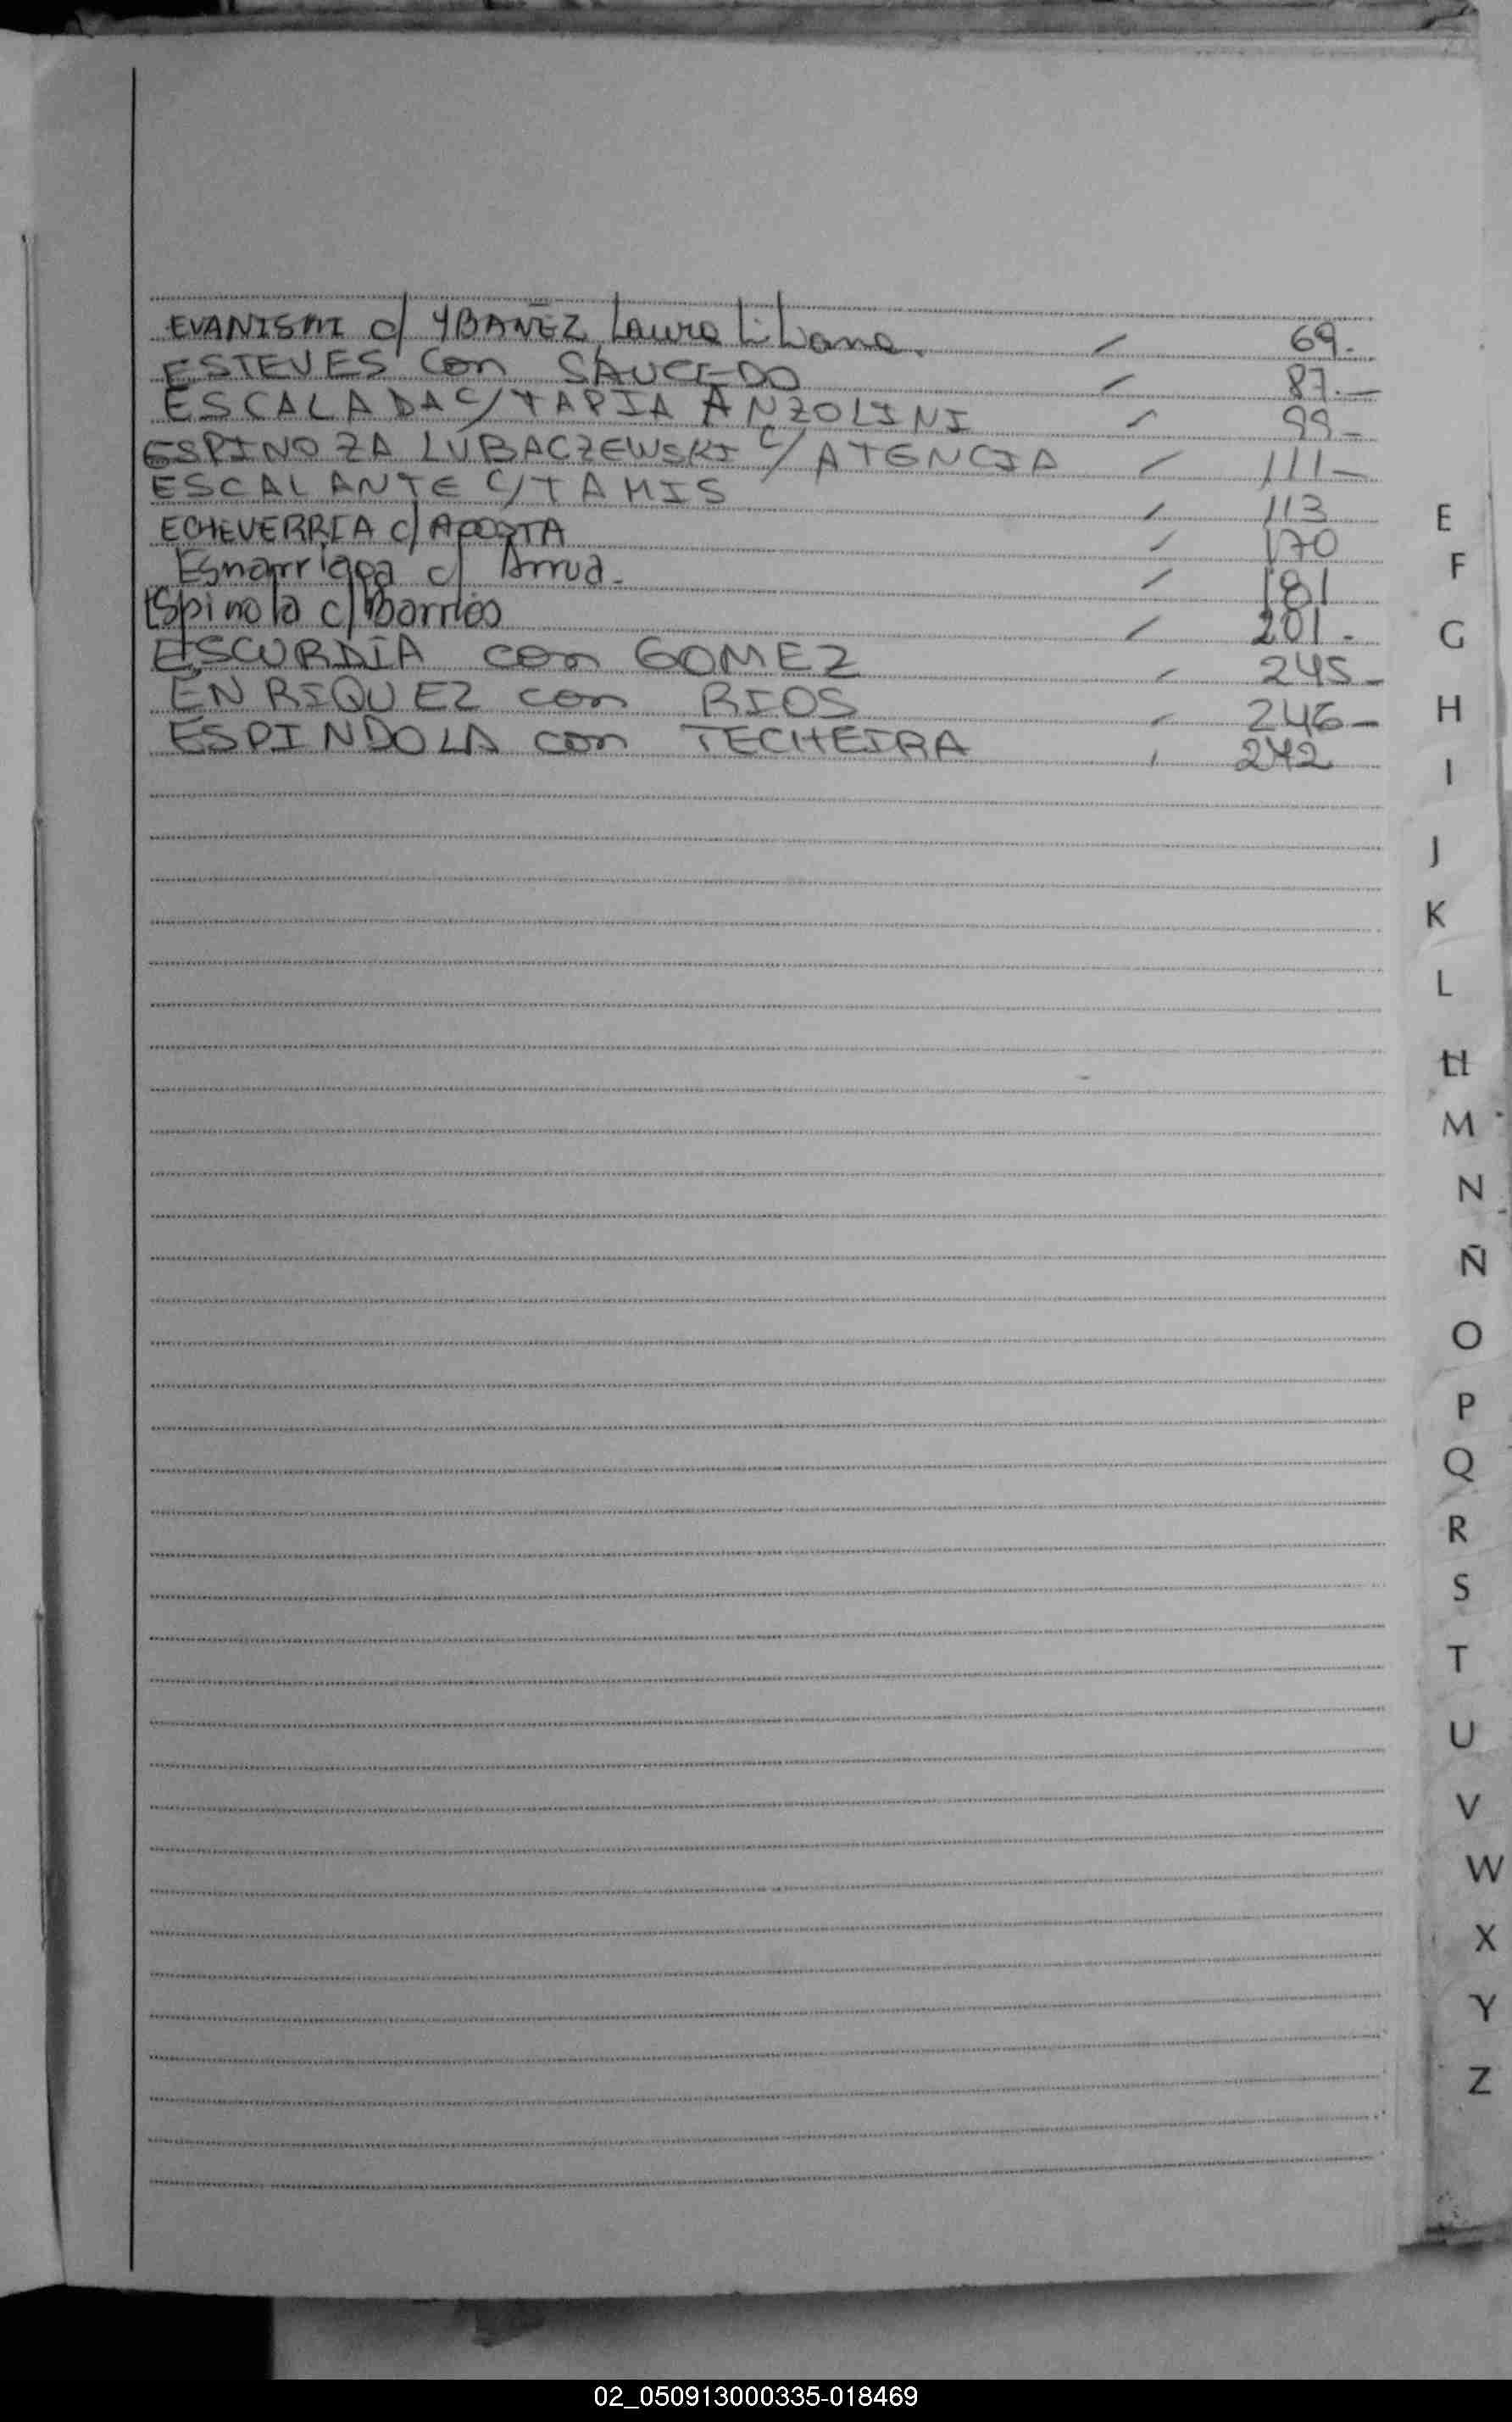 EVANISMI c/ YBAÑEZ, Laura Liliana. / 69.-
ESTEVES con SAUCEDO / 87.-
ESCALADA C/TAPIA ANZOLINI / 99-
ESPINOZA LUBACZEWSKI C/ATENCIA / 111-
ESCALANTE C/TAMIS / 113
ECHEVERRIA c/ ACOSTA / 170
c/ Arrua- / 181
Espinola c/ Barrios / 201.-
ESCURDIA con GOMEZ / 245-
ENRIQUEZ con RIOS / 246-
ESPINDOLA con TECHEIRA / 242
E
F
G
H
I
J
K
L
LL
M
N
Ñ
O
P
Q
R
S
T
U
V
W
X
Y
Z
02_050913000335-018469